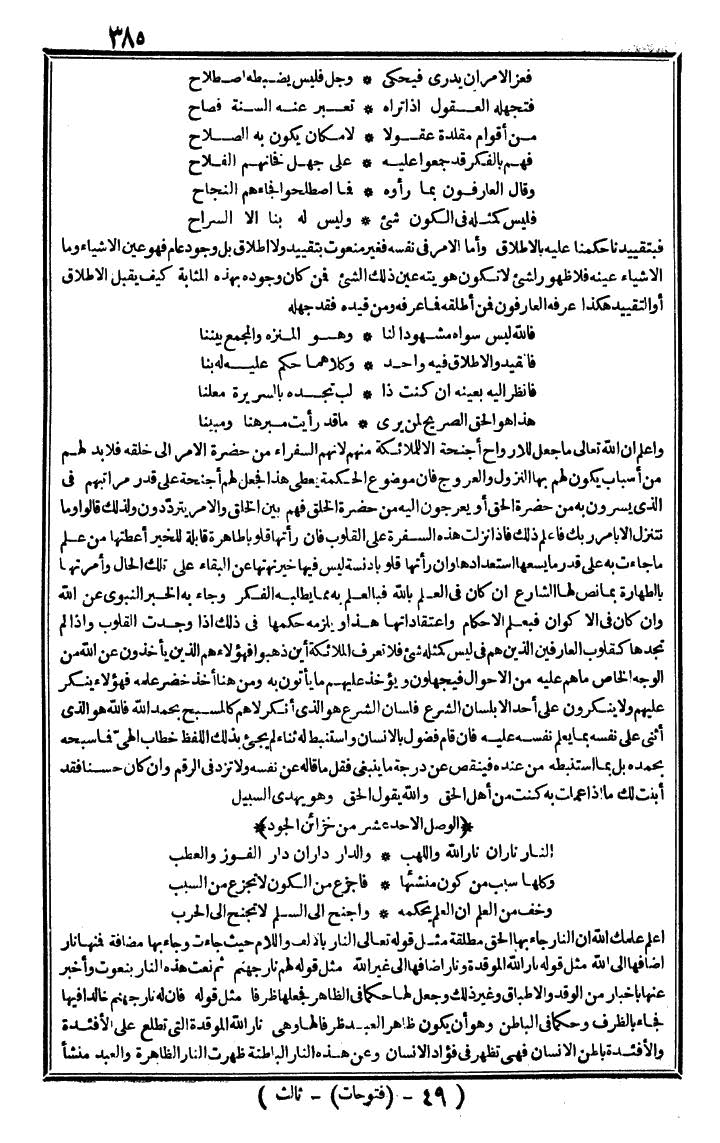 ٣٨٥
فعز الامر ان يدرى فيحكى * وجل فليس يضبطه اصطلاح
فتجهله العقول اذا تراه * تعبر عنه السنة فصاح
من أقوام مقلدة عقولا * لامكان يكون به الصلاح
فهم بالفكر قد جمعوا عليه * على جهل فخانهم الفلاح
وقال العارفون بما رأوه * فما اصطلحوا فجاءهم النجاح
فليس كمثله فى الكون شئ * وليس له بنا الا السراح
فبتقييدنا حكمنا عليه بالاطلاق وأما الامر فى نفسه فغير منعوت بتقييد ولا اطلاق بل وجود عام فهو عين الاشياء وما
الاشياء عينه فلا ظهور لشئ لا تكون هويته عين ذلك الشئ فمن كان وجوده بهذه المثابة كيف يقبل الاطلاق
أو التقييد هكذا عرفه العارفون فمن أطلقه فما عرفه ومن قيده فقد جهله
فالله ليس سواه مشهودا لنا * وهو المنزه والمجمع بيننا
فانقيد والاطلاق فيه واحد * وكلاهما حكم عليه له بنا
فانظر اليه بعينه ان كنت ذا * لب تجده بالسريرة معلنا
هذا هو الحق الصريح لمن يرى * ما قد رأيت مبرهنا ومبينا
واعلم ان الله تعالى ما جعل للارواح أجنحة الا للملائكة منهم لانهم السفراء من حضرة الامر الى خلقه فلا بد لهم
من أسباب يكون لهم بها النزول والعروج فان موضوع الحكمة يعطى هذا فجعل لهم أجنحة على قدر مراتبهم فى
الذى يسرون به من حضرة الحق أو يعرجون اليه من حضرة الخلق فهم بين الخلق والامر يترددون ولذلك قالوا وما
نتنزل الا بامر ربك فاعلم ذلك فاذا نزلت هذه السفرة على القلوب فان رأتها قلوبا طاهرة قابلة للخير أعطتها من علم
ما جاءت به على قدر ما يسعها استعدادها وان رأتها قلوبا دنسة ليس فيها خير نهتها عن البقاء على تلك الحال وأمرتها
بالطهارة بما نص لها الشارع ان كان فى العلم بالله فبالعلم به مما يطلبه الفكر وجاء به الخبر النبوى عن الله
وان كان فى الاكوان فبعلم الاحكام واعتقاداتها هذا ويلزمه حكمها فى ذلك اذا وجدت القلوب واذا لم
تجدها كقلوب العارفين الذين هم فى ليس كمثله شئ فلا تعرف الملائكة أين ذهبوا فهؤلاء هم الذين يأخذون عن الله من
الوجه الخاص ما هم عليه من الاحوال فيجهلون ويؤخذ عليهم ما يأتون به ومن هنا أخذ خضر علمه فهؤلاء ينكر
عليهم ولا ينكرون على أحد الا بلسان الشرع فلسان الشرع هو الذى أنكر لا هم كالمسبح بحمد الله فالله هو الذى
أثنى على نفسه بما يعلم نفسه عليه فان قام فضول بالانسان واستنبط له ثناء لم يجئ بذلك اللفظ خطاب الهىّ فما سبحه
بحمده بل بما استنبطه من عنده فينقص عن درجة ما ينبغى فقل ما قاله عن نفسه ولا تزد فى الرقم وان كان حسنا فقد
أبنت لك ما اذا عملت به كنت من أهل الحق والله يقول الحق وهو يهدى السبيل
﴿الوصل الاحد عشر من خزائن الجود﴾
النار ناران نار الله واللهب * والدار داران دار الفوز والعطب
وكلها سبب من كون منشئها * فاجزع من الكون لا تجزع من السبب
وخف من العلم ان العلم يحكمه * واجنح الى السلم لا تجنح الى الحرب
اعلم علمك الله ان النار جاء بها الحق مطلقة مثل قوله تعالى النار بالالف واللام حيث جاءت وجاء بها مضافة فمنها نار
اضافها الى الله مثل قوله نار الله الموقدة ونار اضافها الى غير الله مثل قوله لهم نار جهنم ثم نعت هذه النار بنعوت وأخبر
عنها باخبار من الوقد والاطباق وغير ذلك وجعل لها حكما فى الظاهر فجعلها ظرفا مثل قوله فان له نار جهنم خالدا فيها
فجاء بالظرف وحكما فى الباطن وهو أن يكون ظاهر العبد ظرفا لها وهى نار الله الموقدة التى تطلع على الأفئدة
والأفئدة باطن الانسان فهى تظهر فى فؤاد الانسان وعن هذه النار الباطنة ظهرت النار الظاهرة والعبد منشأ
( ٤٩ - (فتوحات) - ثالث )